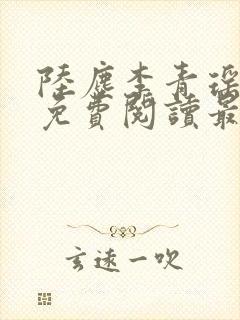 陸塵李青瑤
免費閱讀最
玄遠一吹